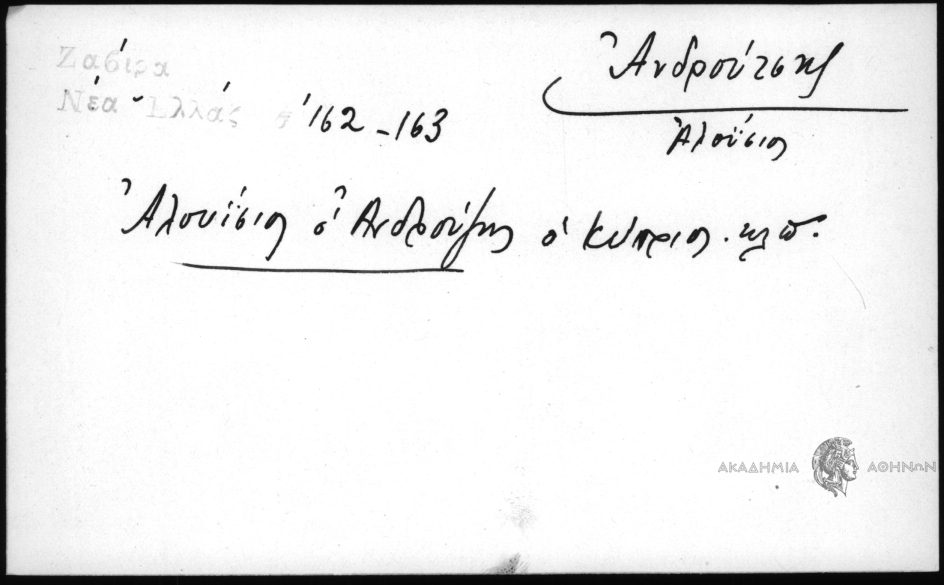 Ζαβίρα
Νέα Ἑλλάς σ 162-163
Ἀνδρούτσης
Ἀλοΰσιος
Ἀλουΐσιος ὁ Ἀνδρούζης ὁ Κύπριος. κλπ.
ΑΚΑΔΗΜΙΑ ΑΘΗΝΩΝ